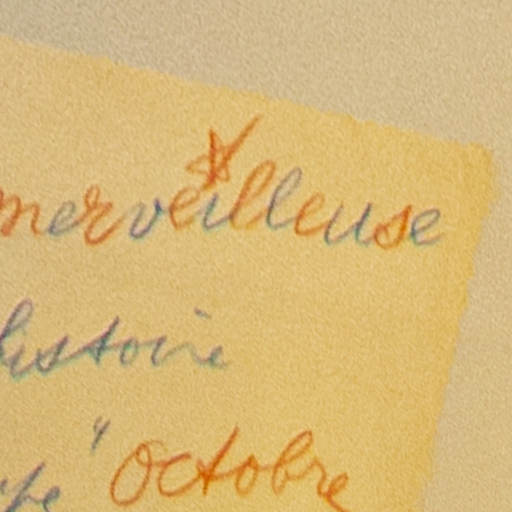 merveilleuse
histoire
" Octobre